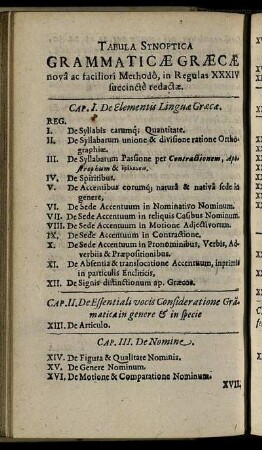 TABULA SYNOPTICA
GRAMMATICÆ GRÆCÆ
novâ ac faciliori Methodô, in Regulas XXXIV
succinctè redactæ.
CAP. I. De Elementis Linguæ Græcæ.
REG.
I. De Syllabis earumq; Quantitate.
II. De Syllabarum unione & divisione ratione Ortho-
graphiæ.
III. De Syllabarum Passione per Contractionem, Apo-
strophum &
IV. De Spiritibus.
V. De Accentibus eorumq; naturâ & nativâ sede in
genere,
VI. De Sede Accentuum in Nominativo Nominum.
VII. De Sede Accentuum in reliquis Casibus Nominum.
VIII. De Sede Accentuum in Motione Adjectivorum.
IX. De Sede Accentuum in Contractione.
X. De Sede Accentuum in Pronominibus, Verbis, Ad-
verbiis & Præpositionibus.
XI. De Absentia & translocatione Accentuum, inprimis
in particulis Encliticis,
XII. De Signis distinctionum ap. Græcos.
CAP. II. De Essentiali vocis Consideratione Gram-
matica in genere & in specie
XIII. De Articulo.
CAP. III. De Nomine.
XIV. De Figura & Qualitate Nominis.
XV. De Genere Nominum.
XVI. De Motione & Comparatione Nominum.
XVII.